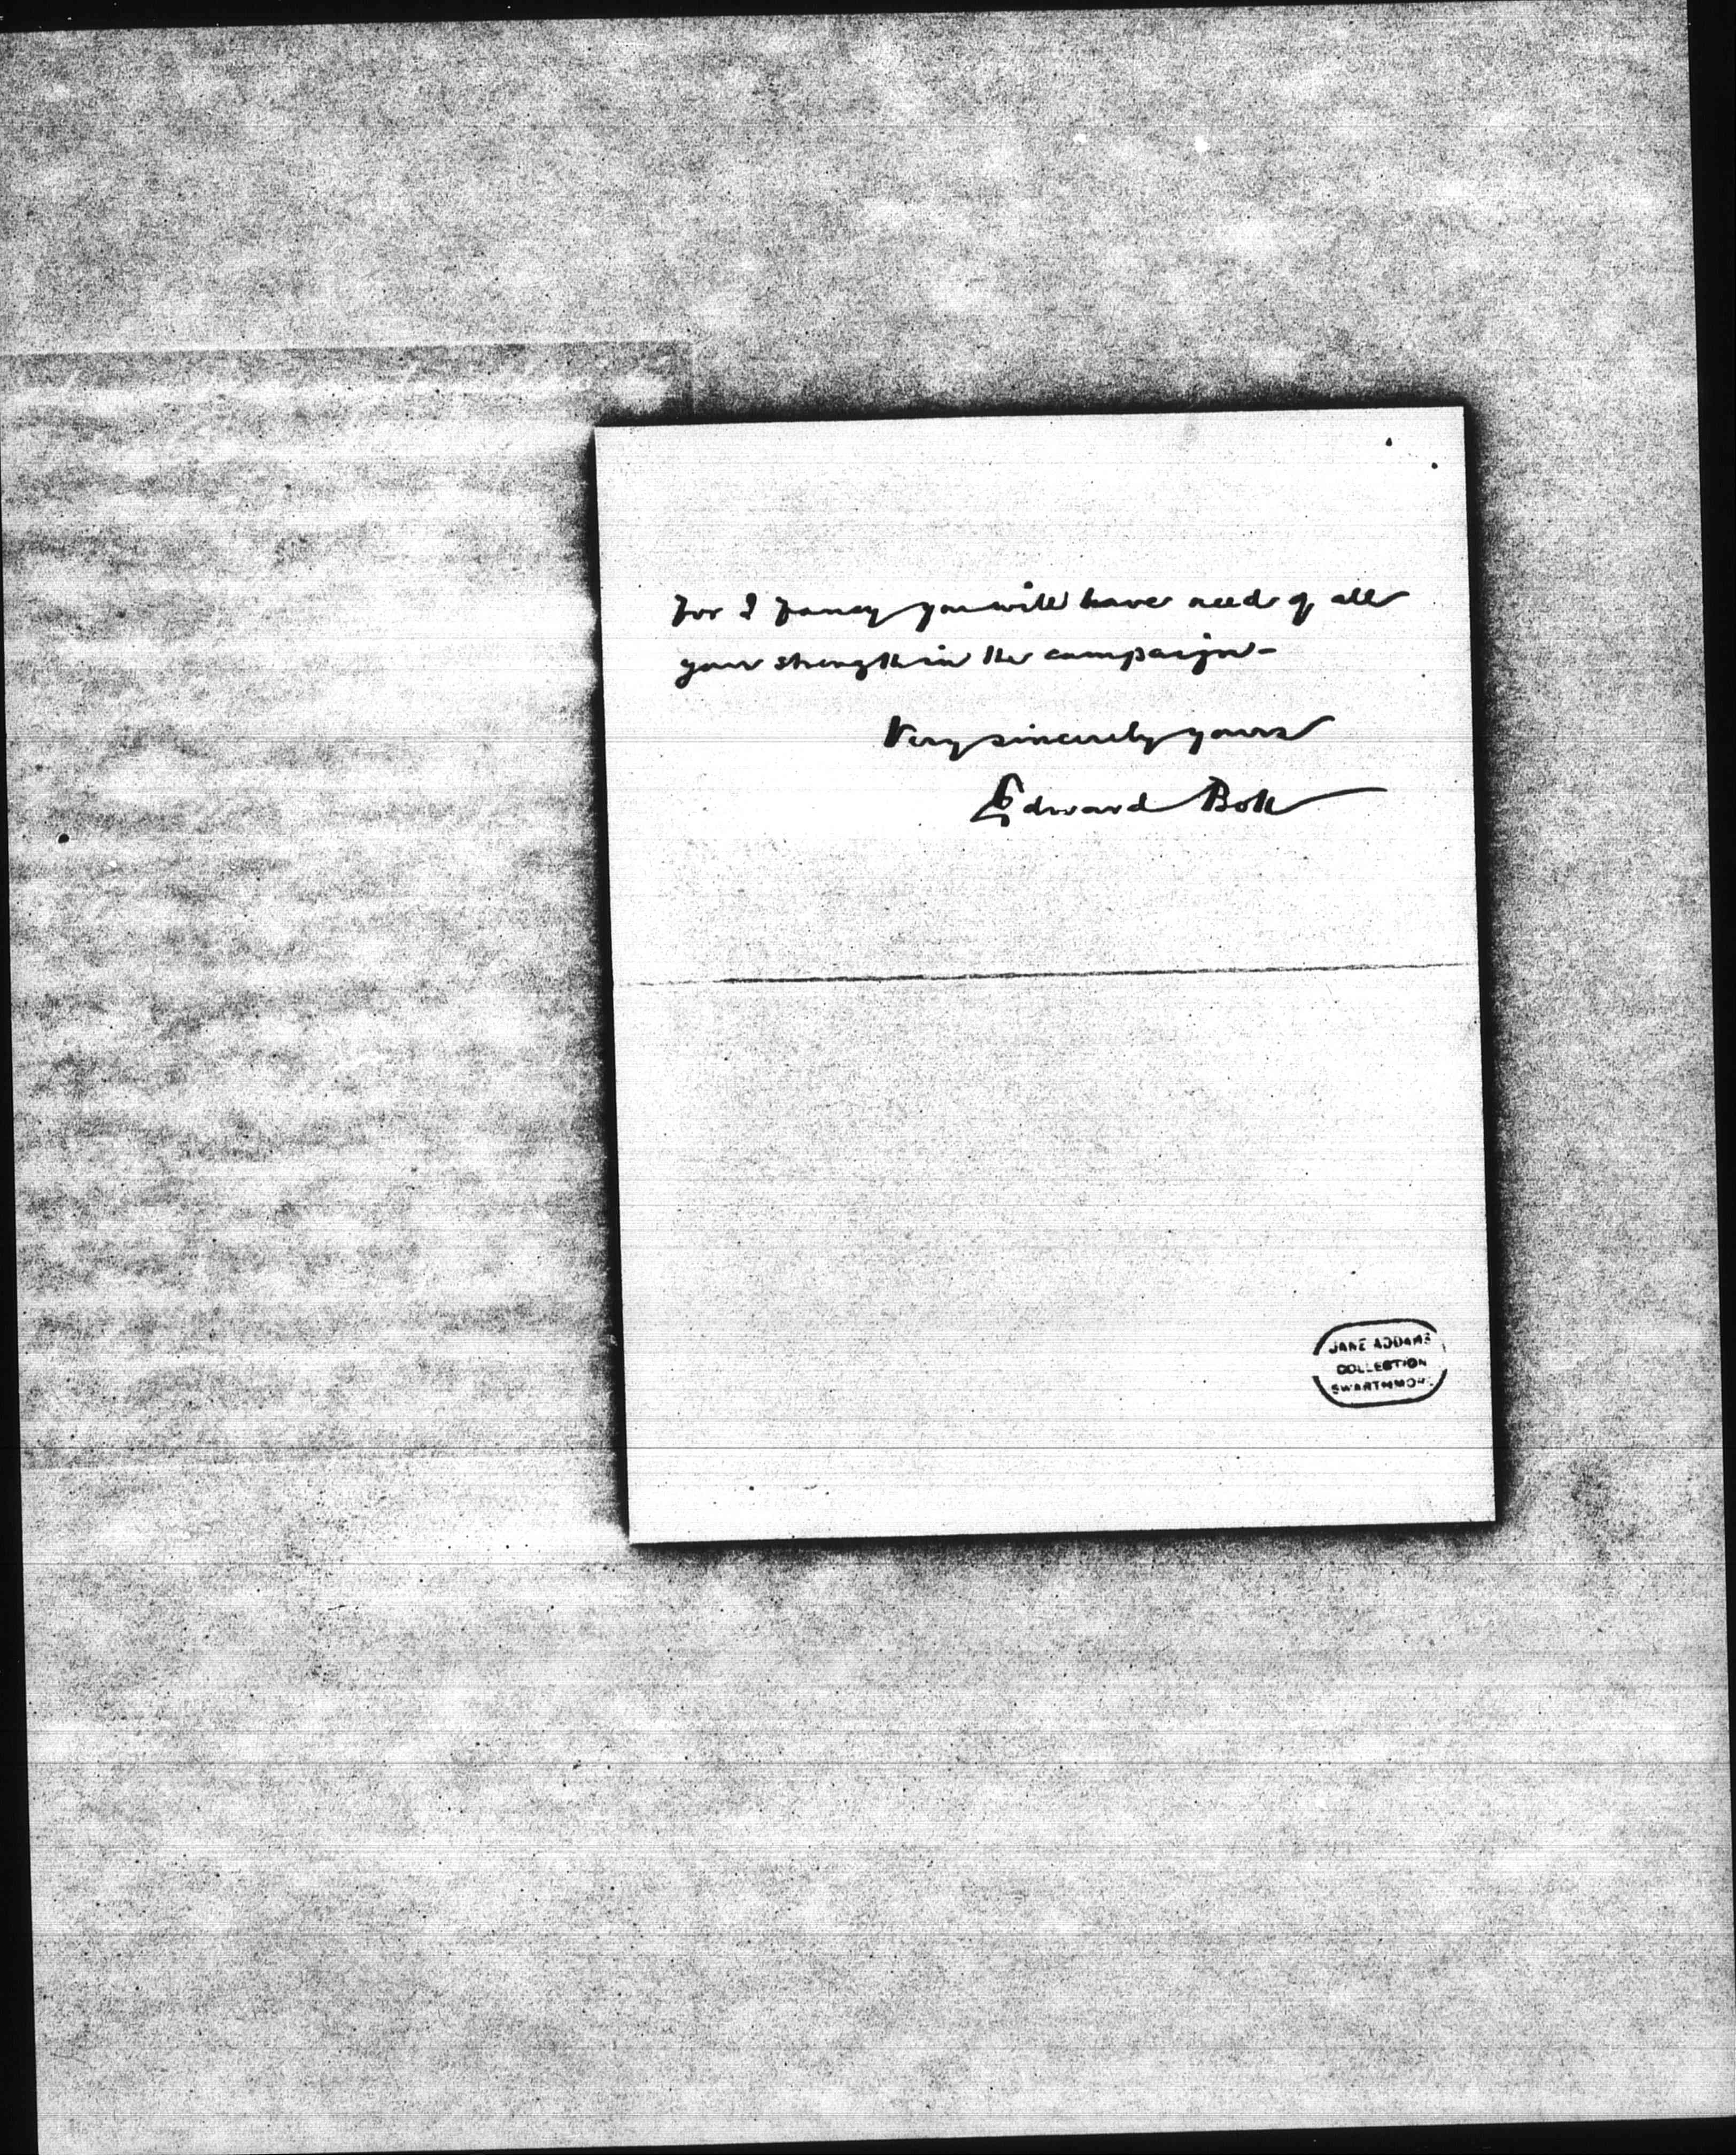 for I fancy you will have need of all
your strength in the campaign –
Very sincerely yours
Edward Bok
JANE ADDAMS
COLLECTION
SWARTHMORE